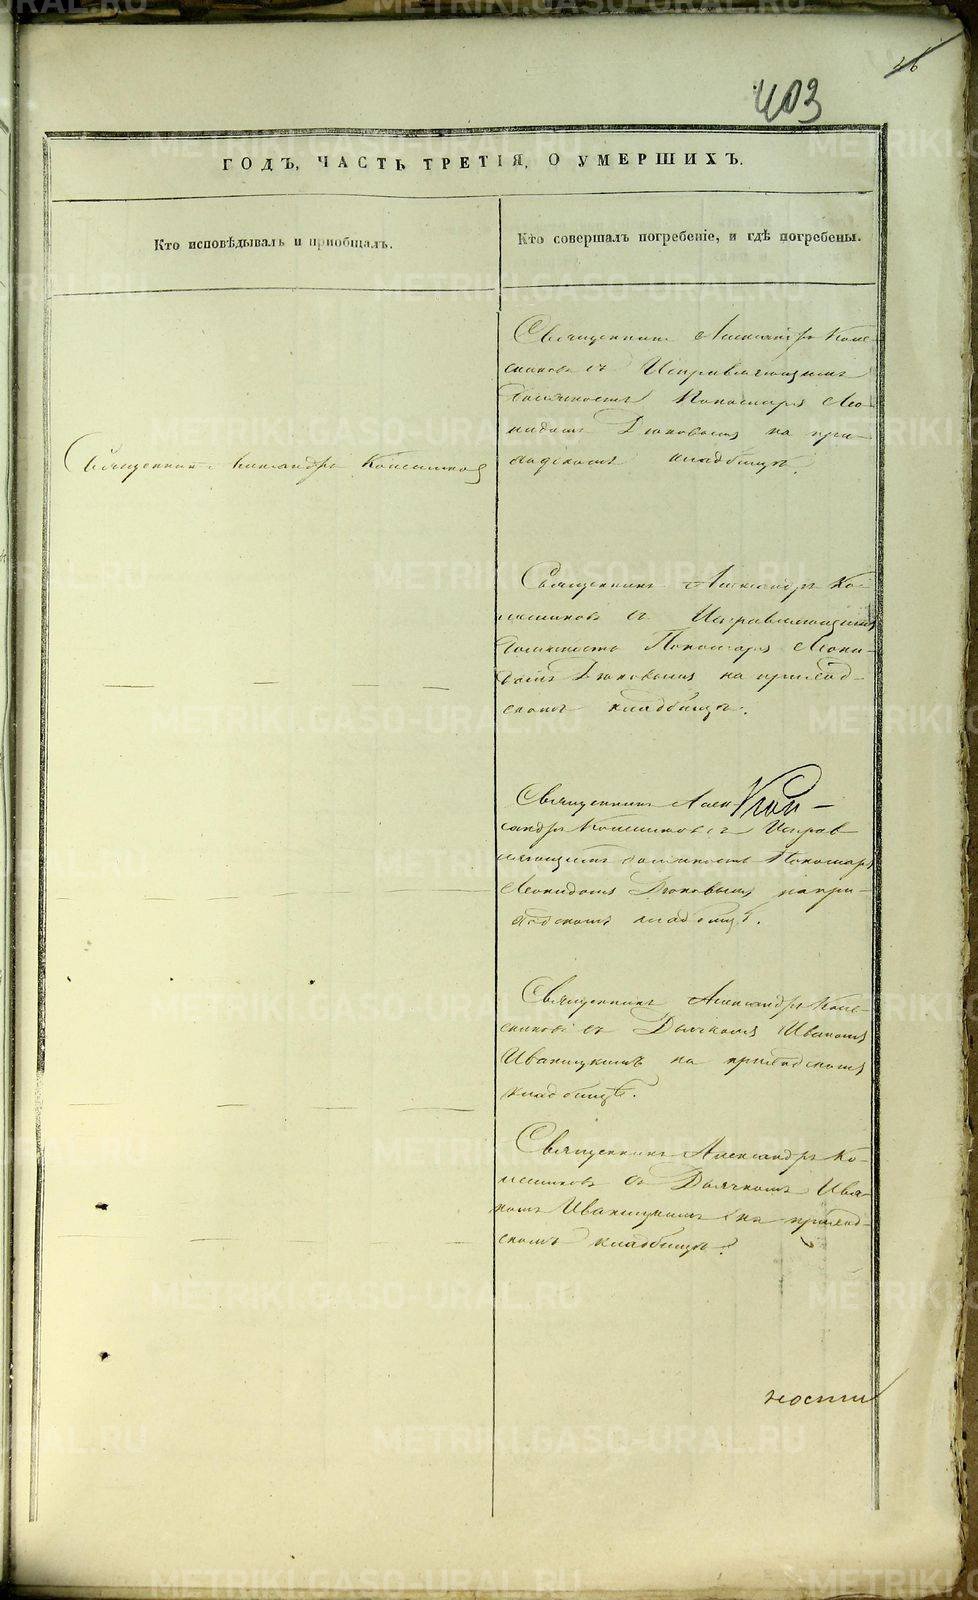 26
403
ГОДЪ, ЧАСТЬ ТРЕТІЯ, О УМЕРШИХЪ.
Кто исповѣдывалъ и приобщалъ.
Кто совершалъ погребеніе, и гдѣ погребены.
Священникъ Александръ
съ Исправляющимъ
должность Пономаря Лео-
нидомъ Дюковымъ на при-
ходскомъ кладбищѣ.
Священникъ Александръ
Священникъ Александръ
съ Исправляющимъ
должность Пономаря Леони-
домъ Дюковымъ на приход-
скомъ кладбищѣ.
Священникъ Алек
сандръ съ Исправ
ляющимъ должность Пономаря
Леонидомъ Дюковымъ на при-
ходскомъ кладбищѣ.
Священникъ Александръ
съ Дьячкомъ Иваномъ
Иваницкимъ на приходскомъ
кладбищѣ.
Священникъ Александръ
съ Дьячкомъ Ива-
номъ Иваницкимъ на приход-
скомъ кладбищѣ.
ности
METRIKI.GASO-URAL.RU